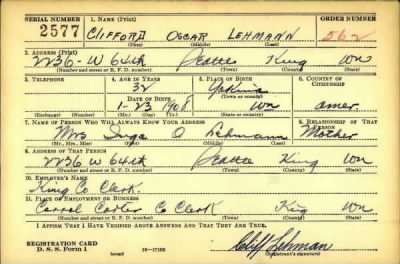 SERIAL NUMBER 1. NAME (Print) ORDER NUMBER
2577 CLIFFORD OSCAR LEHMANN 562
(First) (Middle) (Last)
2. ADDRESS (Print)
2236 - W 64th Seattle King Wn
(Number and street or R. F. D. number) (Town) (County) (State)
3. TELEPHONE 4. AGE IN YEARS 5. PLACE OF BIRTH 6. COUNTRY OF CITIZENSHIP
32 Yakima
DATE OF BIRTH (Town or county)
1-23 1908 Wn amer
(Exchange) (Number) (Mo.) (Day) (Yr.) (State or country)
7. NAME OF PERSON WHO WILL ALWAYS KNOW YOUR ADDRESS 8. RELATIONSHIP OF THAT PERSON
Mrs Inga O Lehmann Mother
(Mr., Mrs., Miss) (First) (Middle) (Last)
9. ADDRESS OF THAT PERSON
2236 W 64th Seattle King Wn
(Number and street or R. F. D. number) (Town) (County) (State)
10. EMPLOYER'S NAME
King Co Clerk
11. PLACE OF EMPLOYMENT OR BUSINESS
Carrol Carter Co Clerk King Wn
(Number and street or R. F. D. number) (Town) (County) (State)
I AFFIRM THAT I HAVE VERIFIED ABOVE ANSWERS AND THAT THEY ARE TRUE.
REGISTRATION CARD
D. S. S. Form 1 Cliff Lehman
(over) (Registrant's signature)